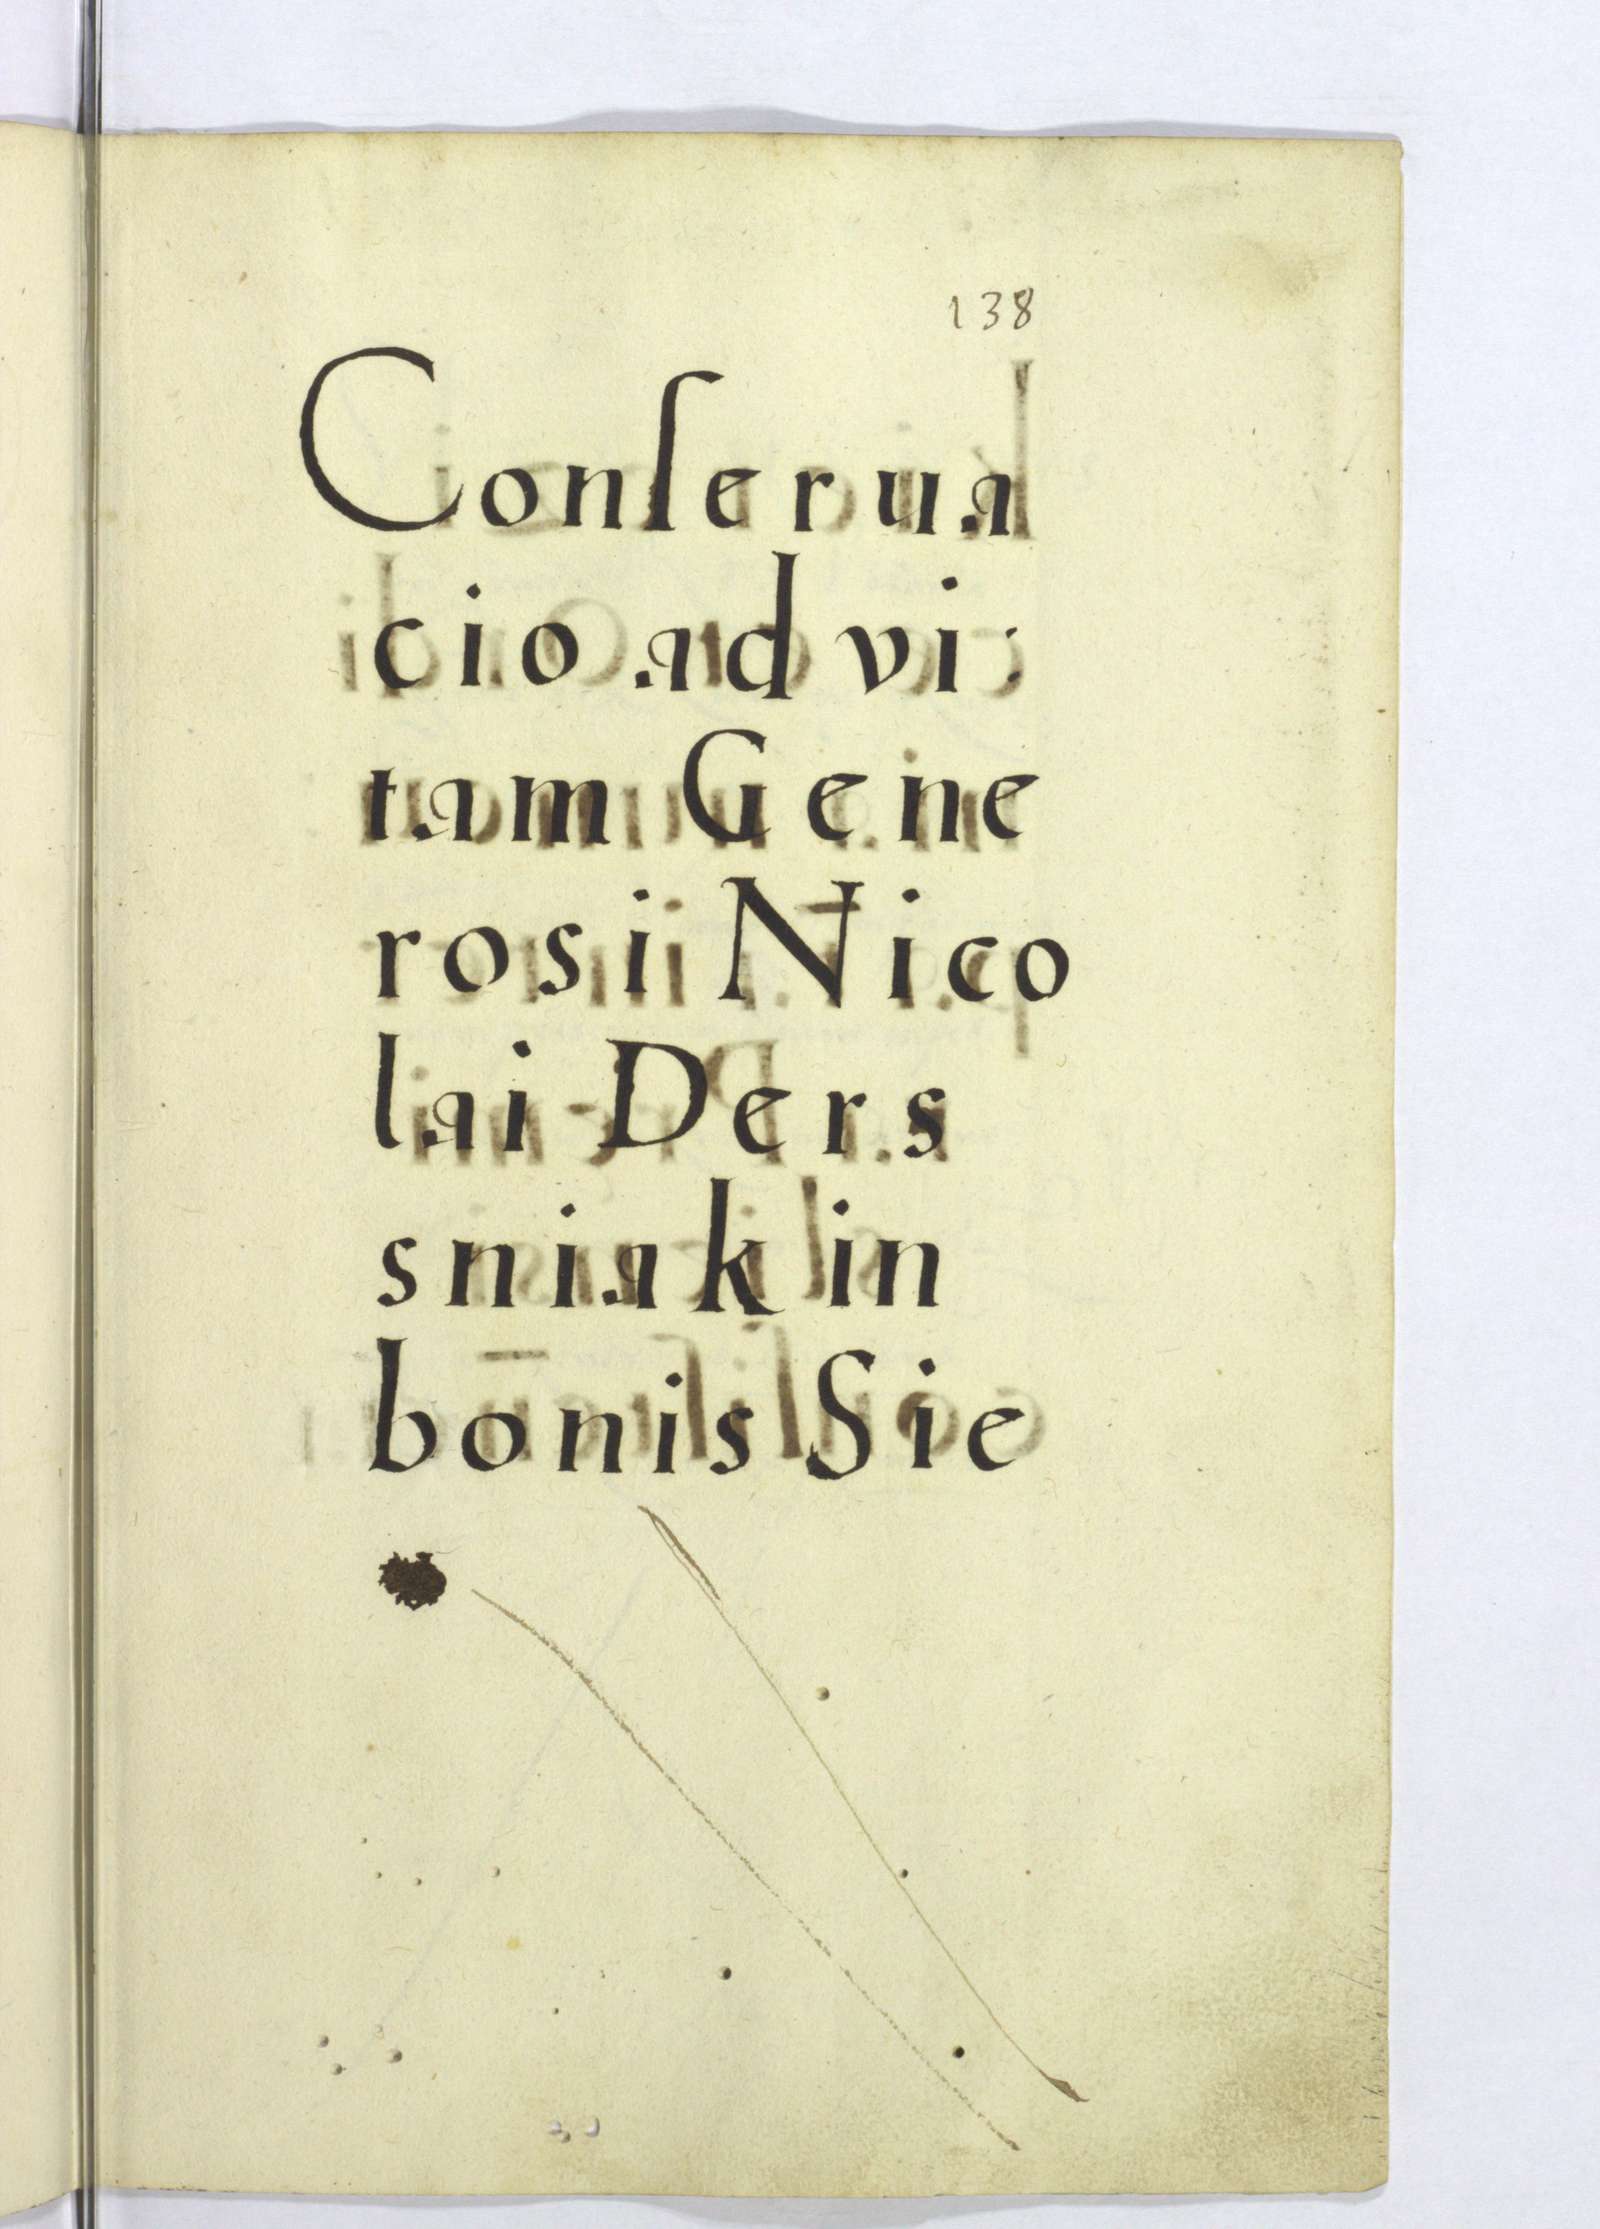 138
Conſerua
cio ad vi:
tam Gene
rosi Nico
lai Ders
sniak in
bonis Sie